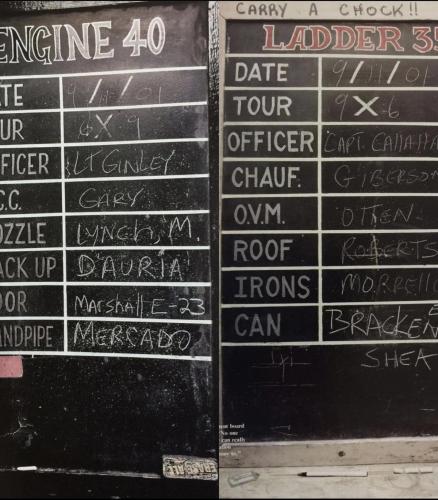 ENGINE 40
TE 9/11/01
UR 6X9
FICER LT GINLEY
C.C. GARY
OZZLE LYNCH, M.
ACK UP D'AURIA
OOR Marshall E-23
ANDPIPE MERCADO
CARRY A CHOCK!!
LADDER 35
DATE 9/11/01
TOUR 9X6
OFFICER CAPT. CALLAHA
CHAUF. GIBERSO
O.V.M. OTTEN
ROOF ROBERTS
IRONS MORRELLO
CAN BRACKEN
SHEA